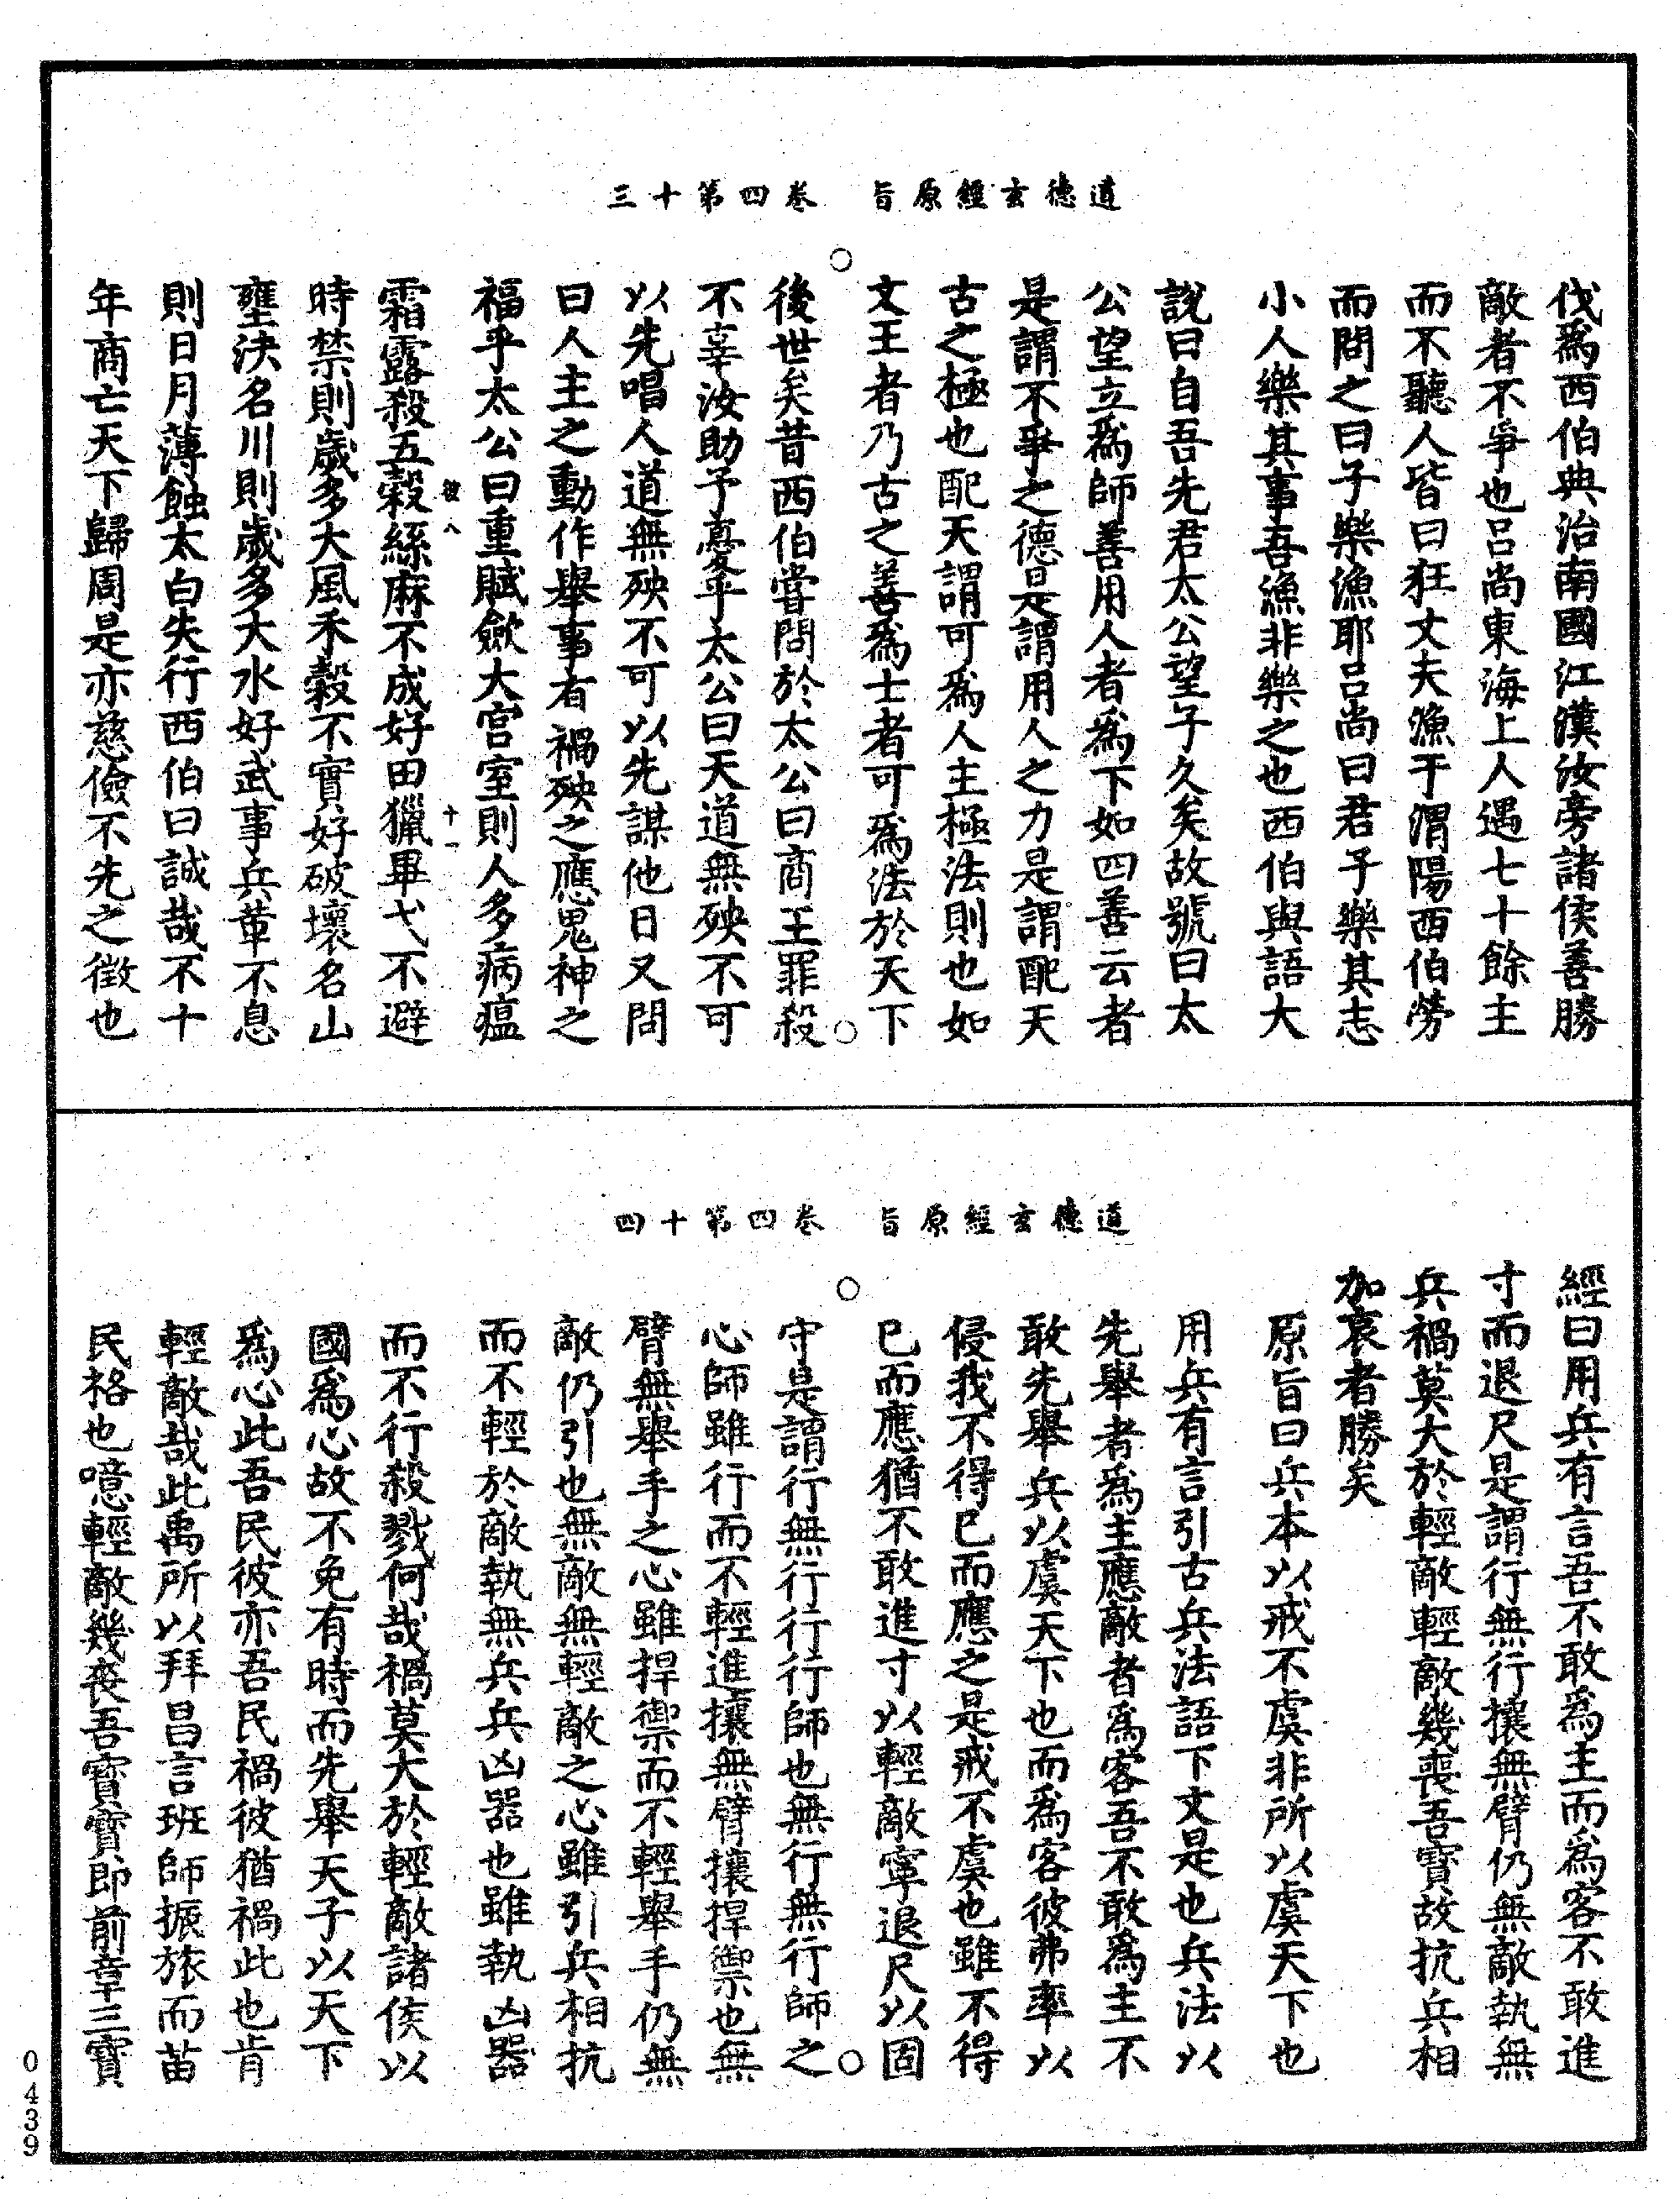 道德玄經原旨　卷四第十三
伐爲西伯典治南國江漢汝旁諸侯善勝
敵者不爭也吕尚東海上人遇七十餘主
而不聽人皆曰狂丈夫漁于渭陽西伯勞
而問之曰子樂漁耶吕尚曰君子樂其志
小人樂其事吾漁非樂之也西伯與語大
說曰自吾先君太公望子久矣故號曰太
公望立爲師善用人者爲下如四善云者
是謂不爭之德是謂用人之力是謂配天
古之極也配天謂可爲人主極法則也如
文王者乃古之善爲士者可爲法於天下
後世矣昔西伯嘗問於太公曰商王罪殺
不辜汝助予憂乎太公曰天道無殃不可
以先唱人道無殃不可以先謀他日又問
曰人主之動作舉事有禍殃之應鬼神之
福乎太公曰重賦歛大宫室則人多病瘟
彼八　十一
霜露殺五穀絲麻不成好田獵畢弋不避
時禁則歲多大風禾穀不實好破壞名山
壅決名川則歲多大水好武事兵革不息
則日月薄蝕太白失行西伯曰誠哉不十
年商亡天下歸周是亦慈儉不先之徵也
道德玄經原旨　卷四第十四
經曰用兵有言吾不敢爲主而爲客不敢進
寸而退尺是謂行無行攘無臂仍無敵執無
兵禍莫大於輕敵輕敵幾喪吾寶故抗兵相
加哀者勝矣
原旨曰兵本以戒不虞非所以虞天下也
用兵有言引古兵法語下文是也兵法以
先舉者爲主應敵者爲客吾不敢爲主不
敢先舉兵以虞天下也而爲客彼弗率以
侵我不得已而應之是戒不虞也雖不得
已而應猶不敢進寸以輕敵寧退尺以固
守是謂行無行行行師也無行無行師之
心師雖行而不輕進攘無臂攘捍禦也無
臂無舉手之心雖捍禦而不輕舉手仍無
敵仍引也無敵無輕敵之心雖引兵相抗
而不輕於敵執無兵兵凶器也雖執凶器
而不行殺戮何哉禍莫大於輕敵諸侯以
國爲心故不免有時而先舉天子以天下
爲心此吾民彼亦吾民禍彼猶禍此也肯
輕敵哉此禹所以拜昌言班師振旅而苗
民格也噫輕敵幾喪吾寶寶即前章三寶
0439